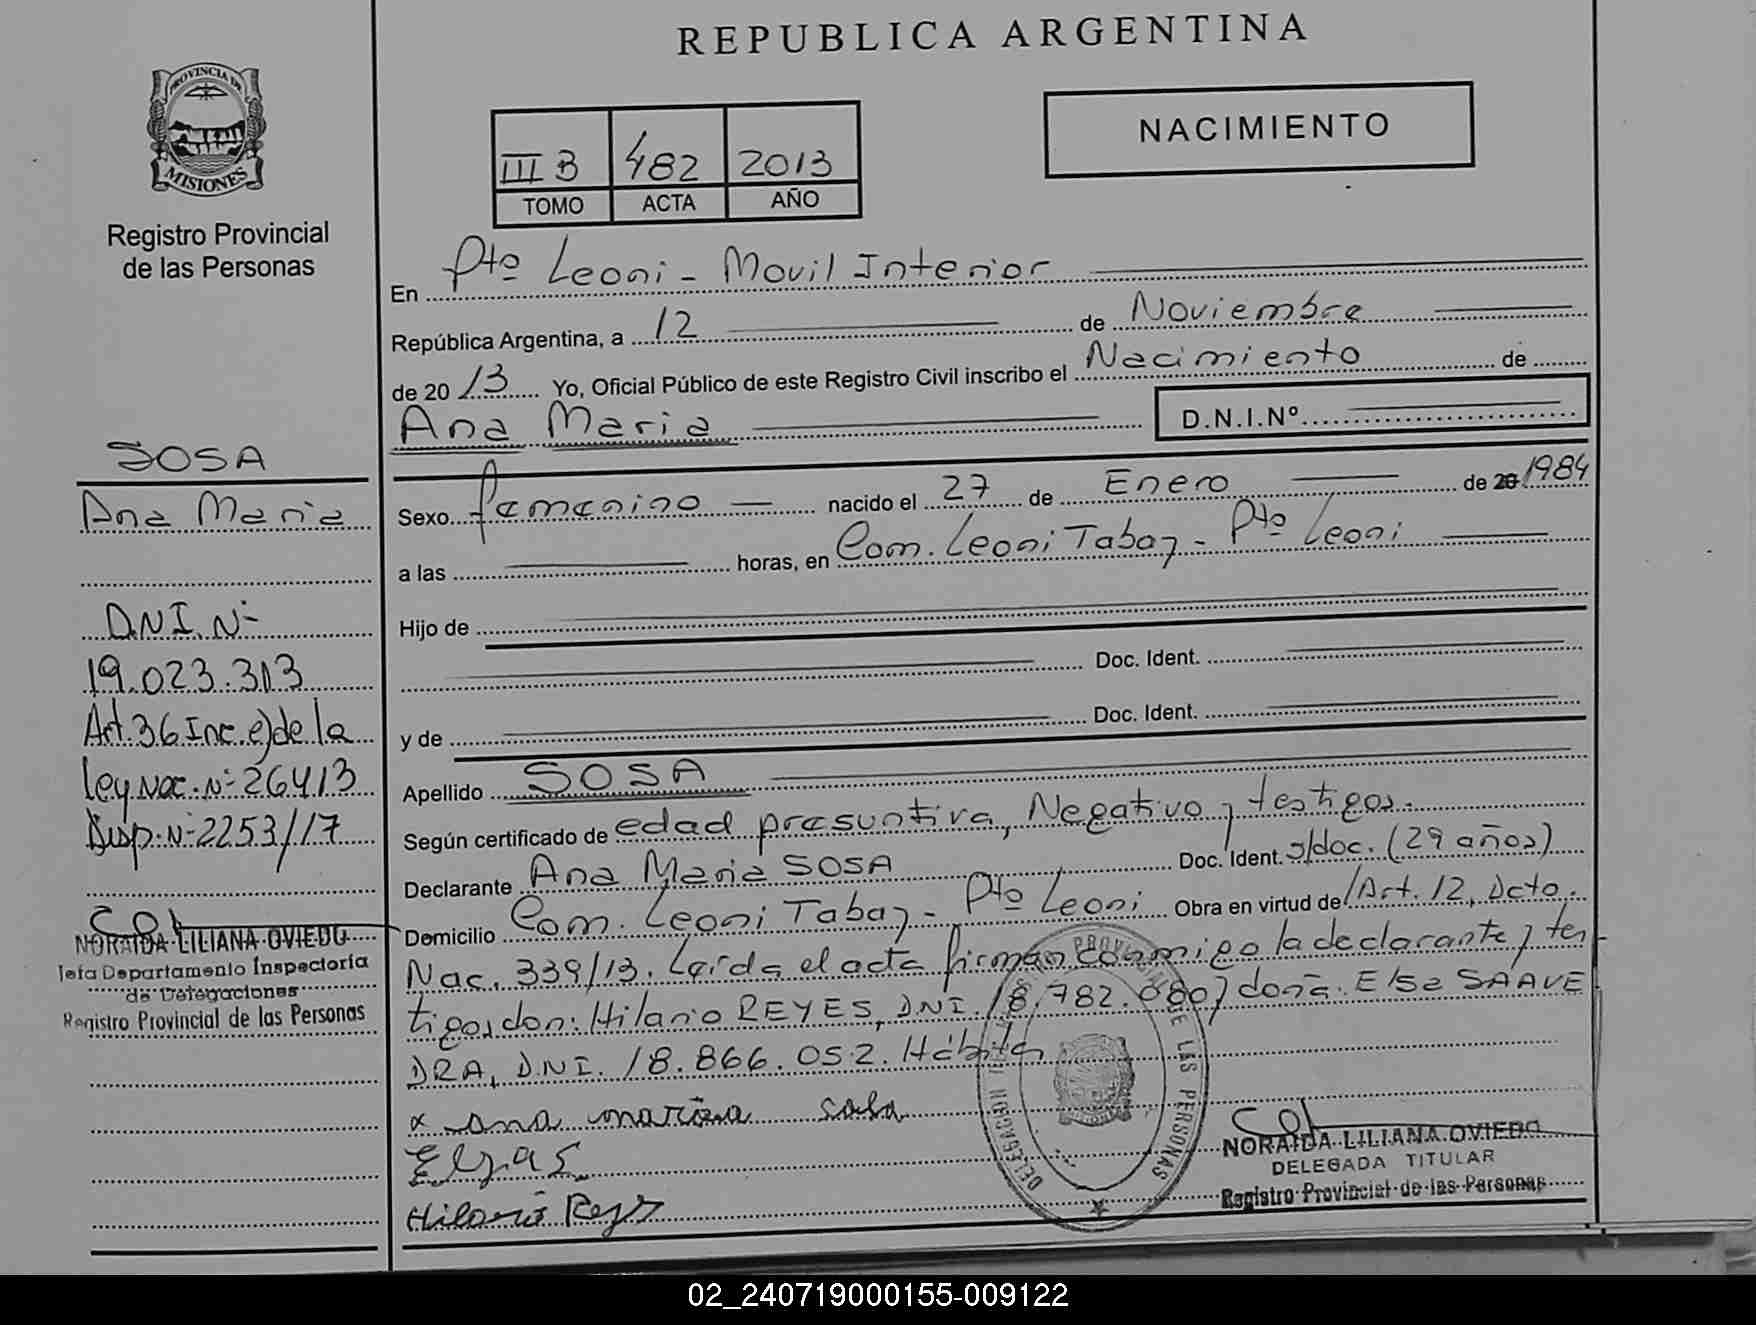 REPUBLICA ARGENTINA
PROVINCIA DE
MISIONES
Registro Provincial
de las Personas
NACIMIENTO
III B 482 2013
TOMO ACTA AÑO
En Pto Leoni - Movil Interior
República Argentina, a 12 de Noviembre
de 2013 Yo, Oficial Público de este Registro Civil inscribo el Nacimiento de
Ana Maria D.N.I.Nº
Sexo femenino nacido el 27 de Enero de 20 1984
a las horas, en Com. Leoni Tabaz - Pto Leoni
Hijo de
Doc. Ident.
y de Doc. Ident.
Apellido SOSA
Según certificado de edad presuntiva, Negativo y testigos.
Declarante Ana Maria SOSA Doc. Ident. s/doc. (29 años)
Domicilio Com. Leoni Tabaz - Pto Leoni Obra en virtud de Art. 12, Dcto.
Nac. 339/13. Leída el acta firman conmigo la declarante y tes
tigos don: Hilario REYES, DNI. 18.782.080 y doña. Elsa SAAVE
DRA, D.N.I. 18.866.052. Hábiles
x ana maria sosa
Hilario Reys
SOSA
Ana Maria
D.N.I. Nº
19.023.313
Art. 36 Inc. e) de la
Ley Nac. Nº 26413
Disp. Nº 2253/17
NORAIDA LILIANA OVIEDO
Jefa Departamento Inspectoria
de Delegaciones
Registro Provincial de las Personas
DELEGACION
PROVINCIAL DE LAS PERSONAS
NORAIDA LILIANA OVIEDO
DELEGADA TITULAR
Registro Provincial de las Personas
02_240719000155-009122